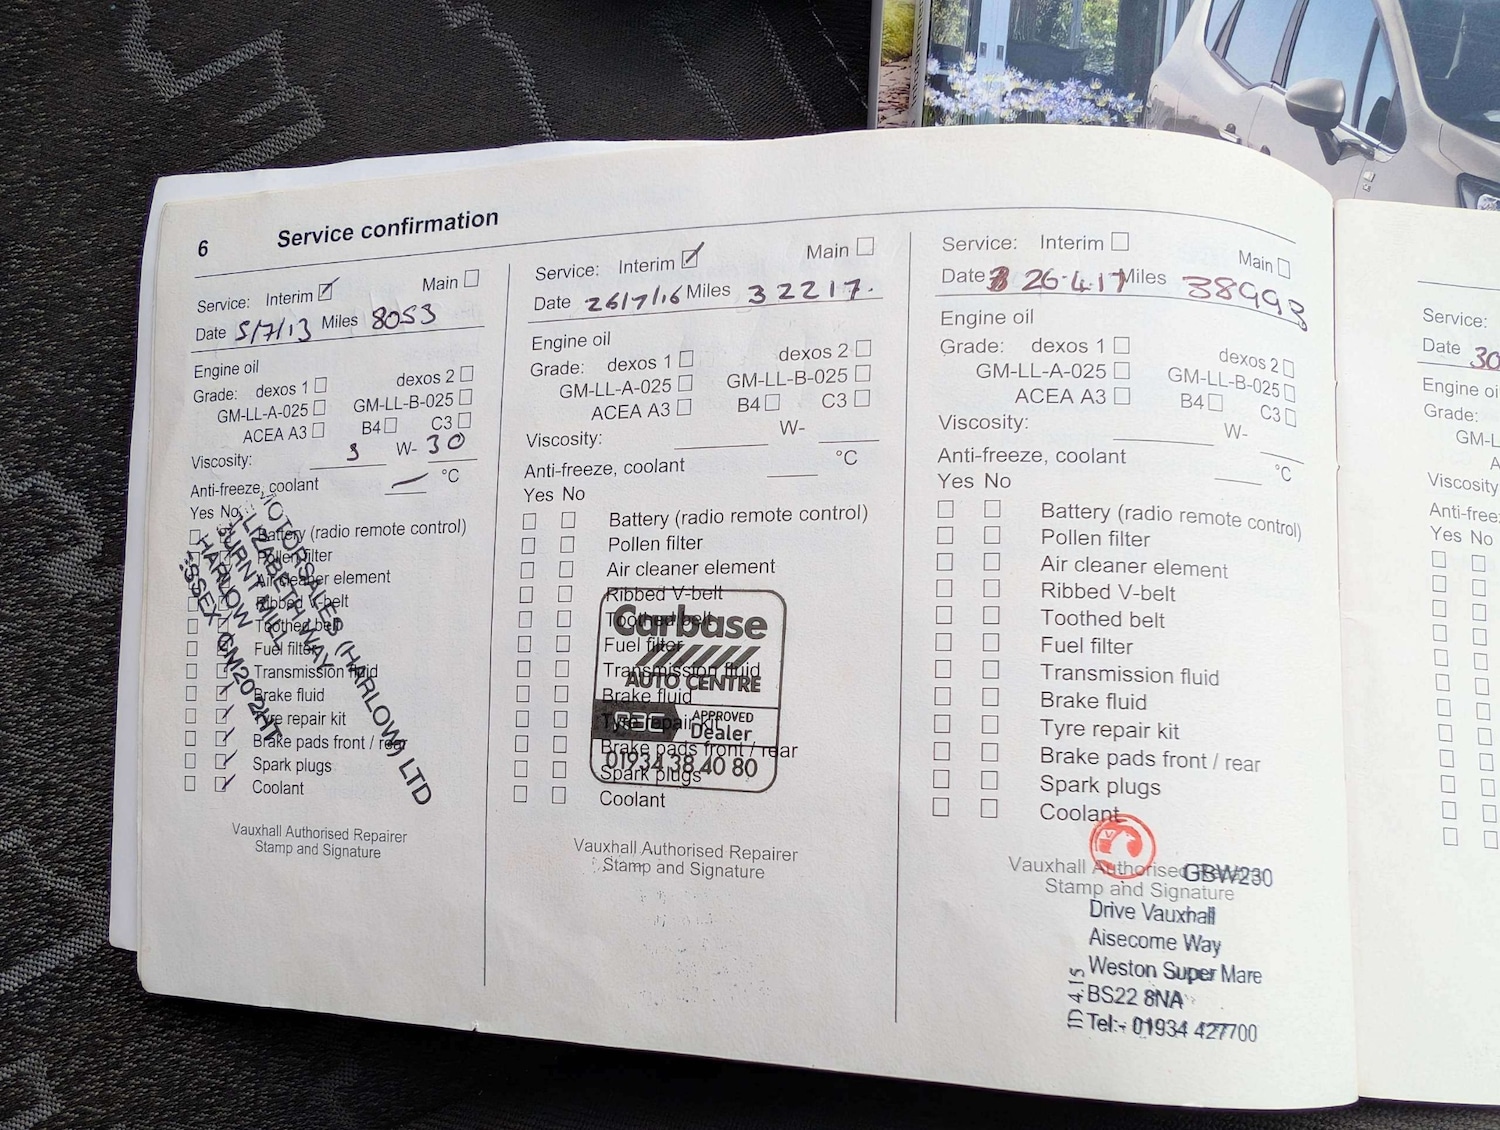 6 Service confirmation
Service: Interim Main
Date 5/7/13 Miles 8053
Engine oil
Grade: dexos 1 dexos 2
GM-LL-A-025 GM-LL-B-025
ACEA A3 B4 C3
Viscosity: 5 W- 30
Anti-freeze, coolant °C
Yes No
Battery (radio remote control)
Pollen filter
Air cleaner element
Ribbed V-belt
Toothed belt
Fuel filter
Transmission fluid
Brake fluid
Tyre repair kit
Brake pads front / rear
Spark plugs
Coolant
MOTORSALES (HARLOW) LTD
ELIZABETH WAY
BURNT MILL
HARLOW
ESSEX CM20 2HT
Vauxhall Authorised Repairer
Stamp and Signature
Service: Interim Main
Date 26/7/16 Miles 32217.
Engine oil
Grade: dexos 1 dexos 2
GM-LL-A-025 GM-LL-B-025
ACEA A3 B4 C3
Viscosity: W-
Anti-freeze, coolant °C
Yes No
Battery (radio remote control)
Pollen filter
Air cleaner element
Ribbed V-belt
Toothed belt
Fuel filter
Transmission fluid
Brake fluid
Tyre repair kit
Brake pads front / rear
Spark plugs
Coolant
Carbase
AUTO CENTRE
APPROVED
Dealer
01934 38 40 80
Vauxhall Authorised Repairer
Stamp and Signature
Service: Interim Main
Date 26.4.17 Miles 38993
Engine oil
Grade: dexos 1 dexos 2
GM-LL-A-025 GM-LL-B-025
ACEA A3 B4 C3
Viscosity: W-
Anti-freeze, coolant °C
Yes No
Battery (radio remote control)
Pollen filter
Air cleaner element
Ribbed V-belt
Toothed belt
Fuel filter
Transmission fluid
Brake fluid
Tyre repair kit
Brake pads front / rear
Spark plugs
Coolant
Vauxhall Authorised
Stamp and Signature
GBW230
Drive Vauxhall
Aisecome Way
Weston Super Mare
BS22 8NA
Tel:- 01934 427700
ID 4.15
Service:
Date 30
Engine oil
Grade:
GM-L
A
Viscosity
Anti-free
Yes No